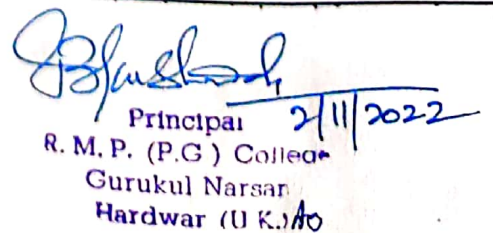 Principal 2/11/2022
R. M. P. (P.G ) College
Gurukul Narsan
Hardwar (U K.)